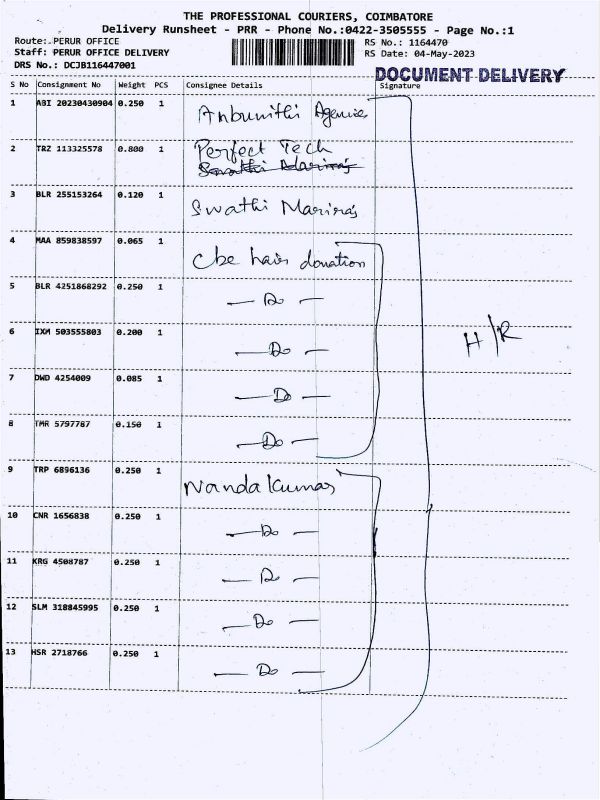 THE PROFESSIONAL COURIERS, COIMBATORE
Delivery Runsheet - PRR - Phone No.:0422-3505555 - Page No.:1
Route: PERUR OFFICE
RS No.: 1164470
Staff: PERUR OFFICE DELIVERY
RS Date: 04-May-2023
DRS No.: DCJB116447001
DOCUMENT DELIVERY
S No Consignment No Weight PCS Consignee Details Signature
1 ABI 20230430904 0.250 1 Anbunithi Agencies
2 TRZ 113325578 0.800 1 Perfect Tech
3 BLR 255153264 0.120 1 Swathi
4 MAA 859838597 0.065 1 Cbe hair donation
5 BLR 4251868292 0.250 1 — Do —
6 IXM 503555803 0.200 1 — Do —
H/R
7 DWD 4254009 0.085 1 — Do —
8 TMR 5797787 0.150 1 — Do —
9 TRP 6896136 0.250 1 Nanda Kumar
10 CNR 1656838 0.250 1 — Do —
11 KRG 4508787 0.250 1 — Do —
12 SLM 318845995 0.250 1 — Do —
13 HSR 2718766 0.250 1 — Do —